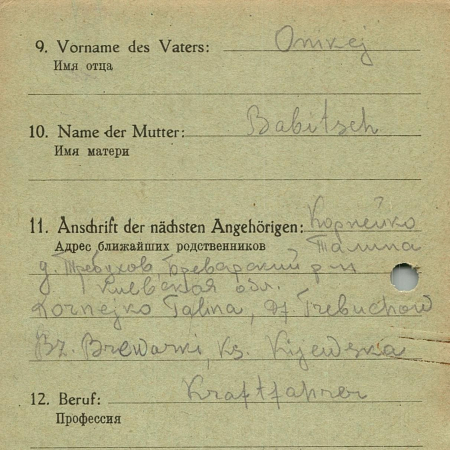 9. Vorname des Vaters: Onikej
Имя отца
10. Name der Mutter: Babitsch
Имя матери
11. Anschrift der nächsten Angehörigen: Корнейко
Адрес ближайших родственников Галина
д. Требухов, Броварский р-н
Киевская обл.
Kornejko Galina, Df. Trebuchow
Bz. Browarki, Ks. Kijewska
12. Beruf: Kraftfahrer
Профессия